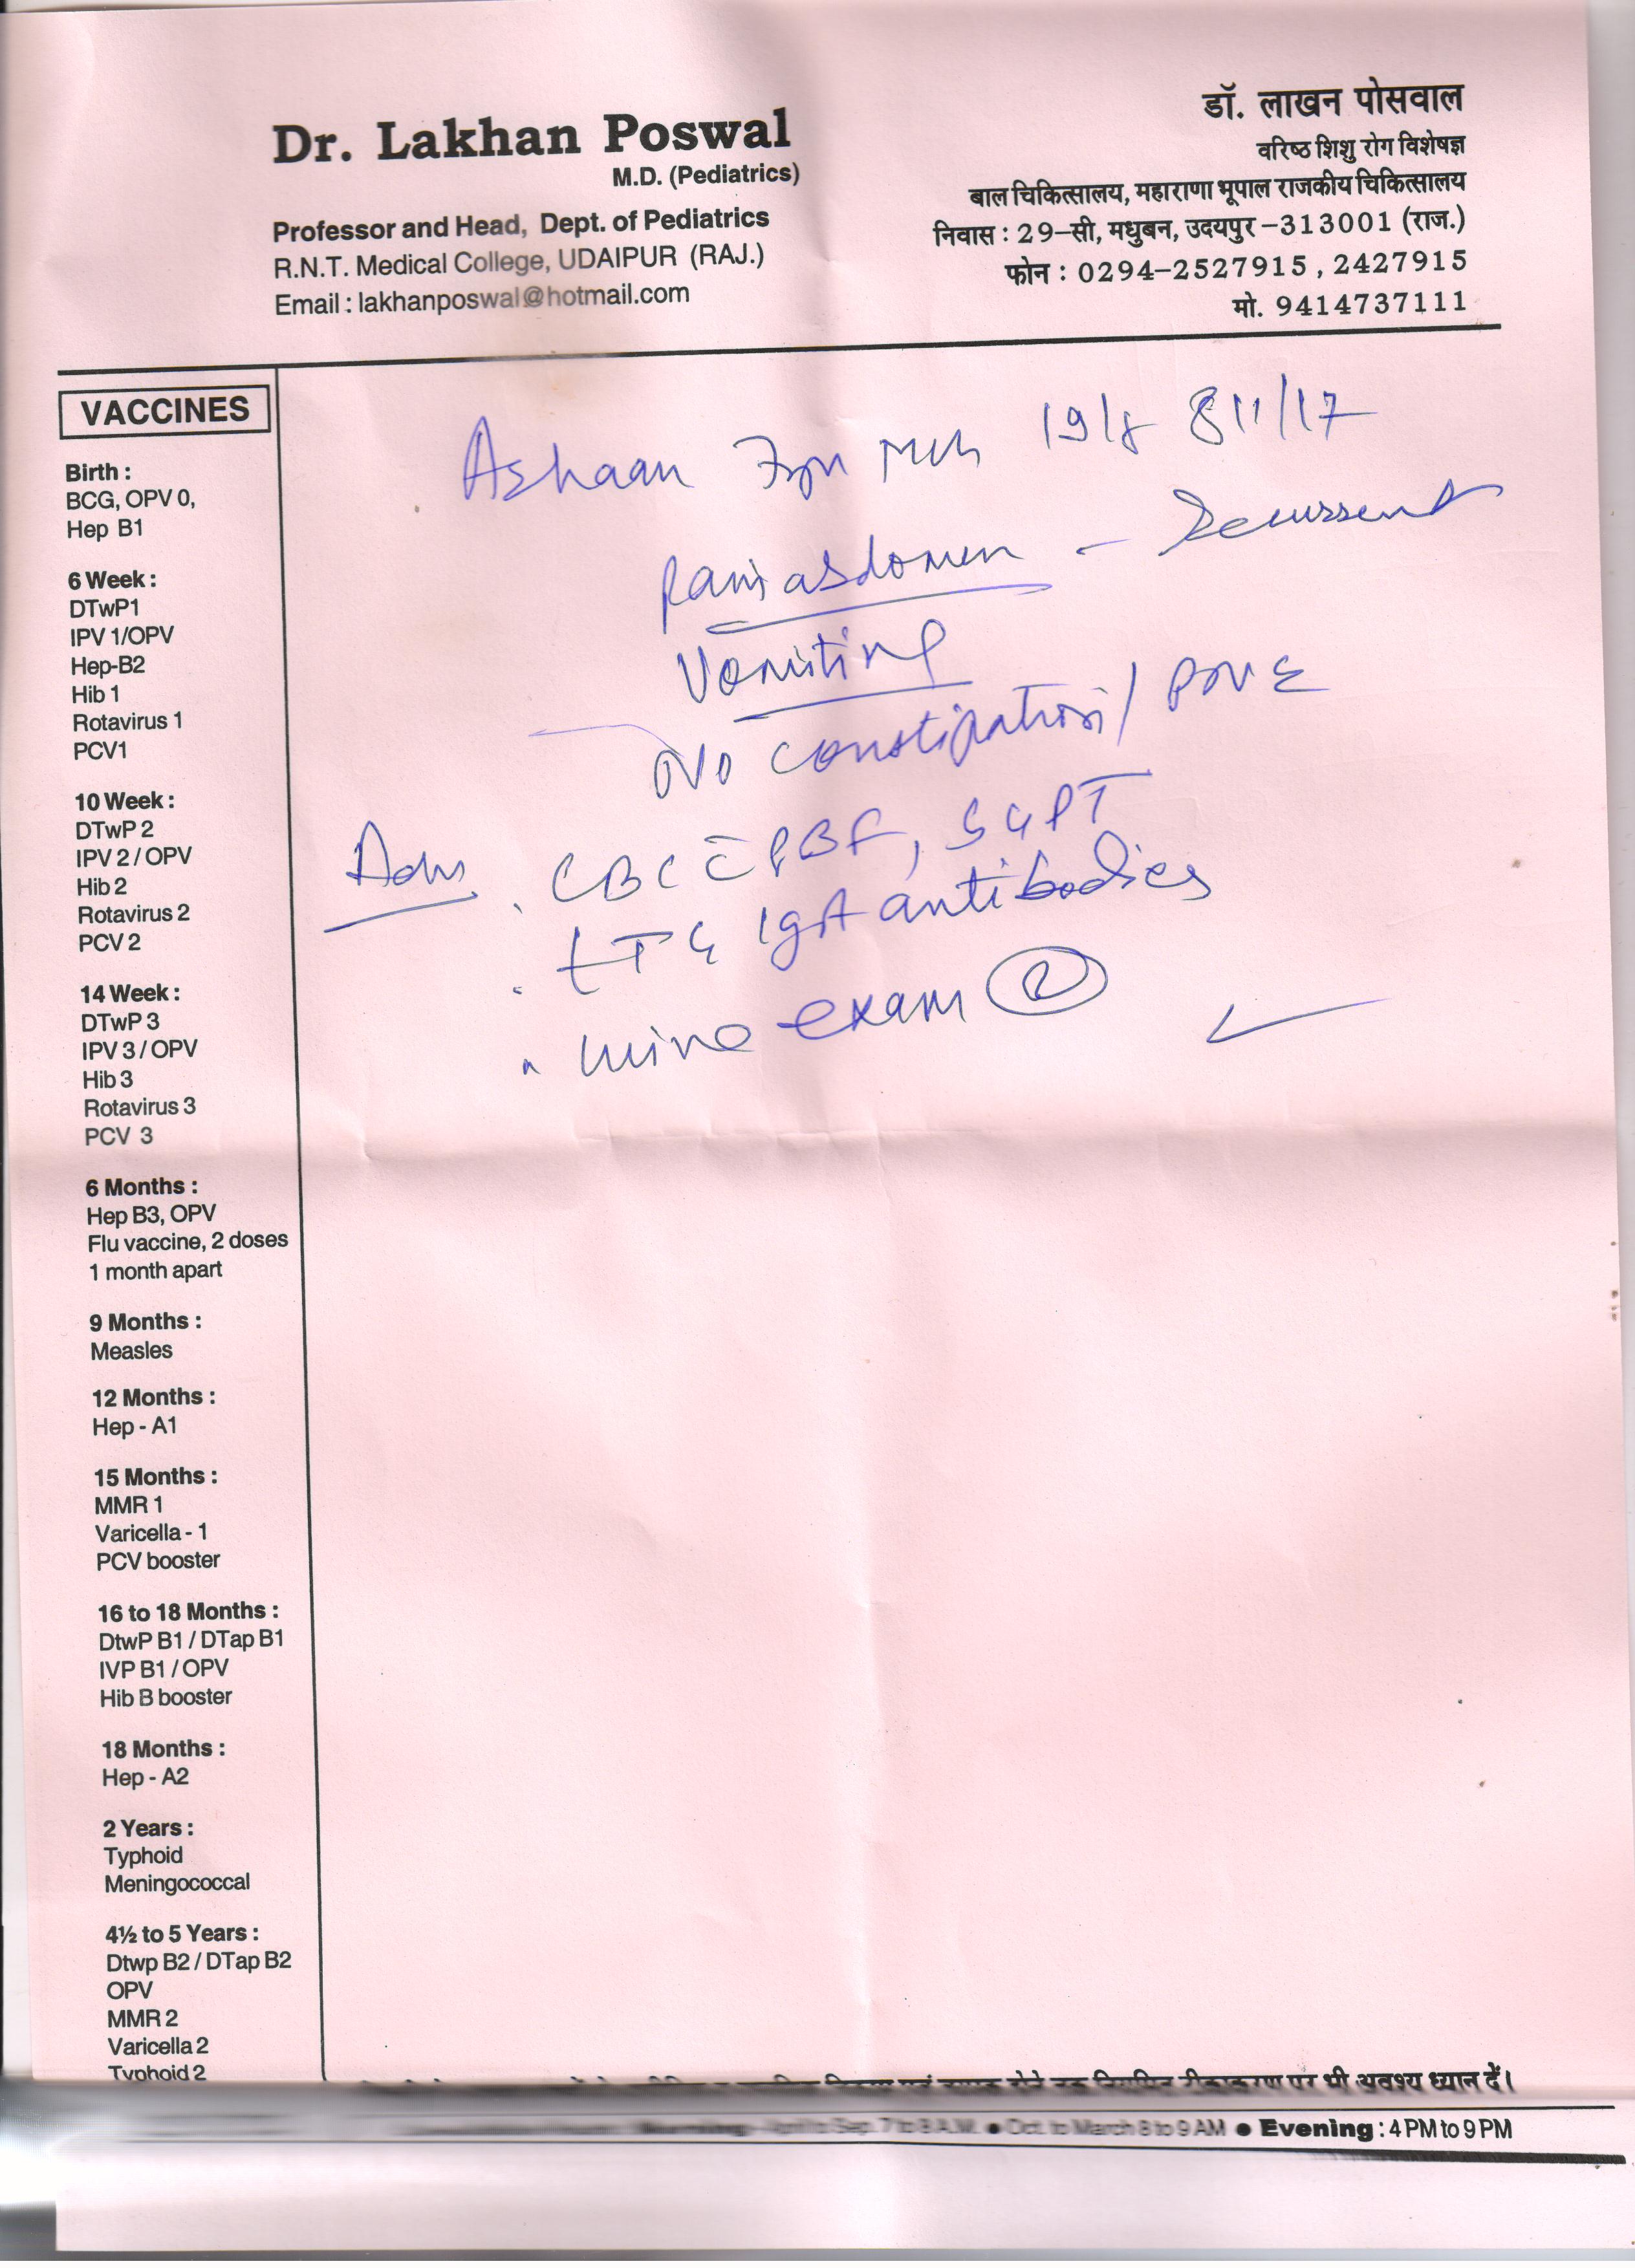 Dr. Lakhan Poswal
M.D. (Pediatrics)
Professor and Head, Dept. of Pediatrics
R.N.T. Medical College, UDAIPUR (RAJ.)
Email : lakhanposwal@hotmail.com
डॉ. लाखन पोसवाल
वरिष्ठ शिशु रोग विशेषज्ञ
बाल चिकित्सालय, महाराणा भूपाल राजकीय चिकित्सालय
निवास : 29–सी, मधुबन, उदयपुर–313001 (राज.)
फोन : 0294–2527915 , 2427915
मो. 9414737111
VACCINES
Birth :
BCG, OPV 0,
Hep B1
6 Week :
DTwP1
IPV 1/OPV
Hep-B2
Hib 1
Rotavirus 1
PCV1
10 Week :
DTwP 2
IPV 2 / OPV
Hib 2
Rotavirus 2
PCV 2
14 Week :
DTwP 3
IPV 3 / OPV
Hib 3
Rotavirus 3
PCV 3
6 Months :
Hep B3, OPV
Flu vaccine, 2 doses
1 month apart
9 Months :
Measles
12 Months :
Hep - A1
15 Months :
MMR 1
Varicella - 1
PCV booster
16 to 18 Months :
DtwP B1 / DTap B1
IVP B1 / OPV
Hib B booster
18 Months :
Hep - A2
2 Years :
Typhoid
Meningococcal
4½ to 5 Years :
Dtwp B2 / DTap B2
OPV
MMR 2
Varicella 2
Typhoid 2
Ashaan 8/11/17
Pain abdomen – Recurrent
Vomiting
No constipation /
Adv . CBC c̄ PBF, SGPT
. tTG IgA antibodies
. urine exam (R)
पर भी अवश्य ध्यान दें।
April to Sep. 7 to 8 A.M. ● Oct. to March 8 to 9 AM ● Evening : 4 PM to 9 PM